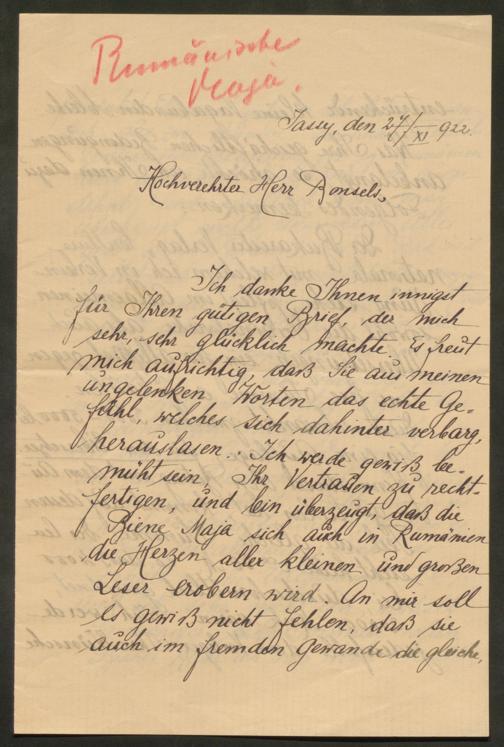 Rumänische
Maja.
Jassy, den 27/XI 922.
Hochverehrter Herr Bonsels,
Ich danke Ihnen innigst
für Ihren gütigen Brief, der mich
sehr, sehr glücklich machte. Es freut
mich aufrichtig, daß Sie aus meinen
ungelenken Worten das echte Ge-
fühl, welches sich dahinter verbarg,
herauslasen. Ich werde gewiß be-
müht sein, Ihr Vertrauen zu recht-
fertigen, und bin überzeugt, daß die
Biene Maja sich auch in Rumänien
die Herzen aller kleinen und großen
Leser erobern wird. An mir soll
es gewiß nicht fehlen, daß sie
auch im fremden Gewande die gleiche,